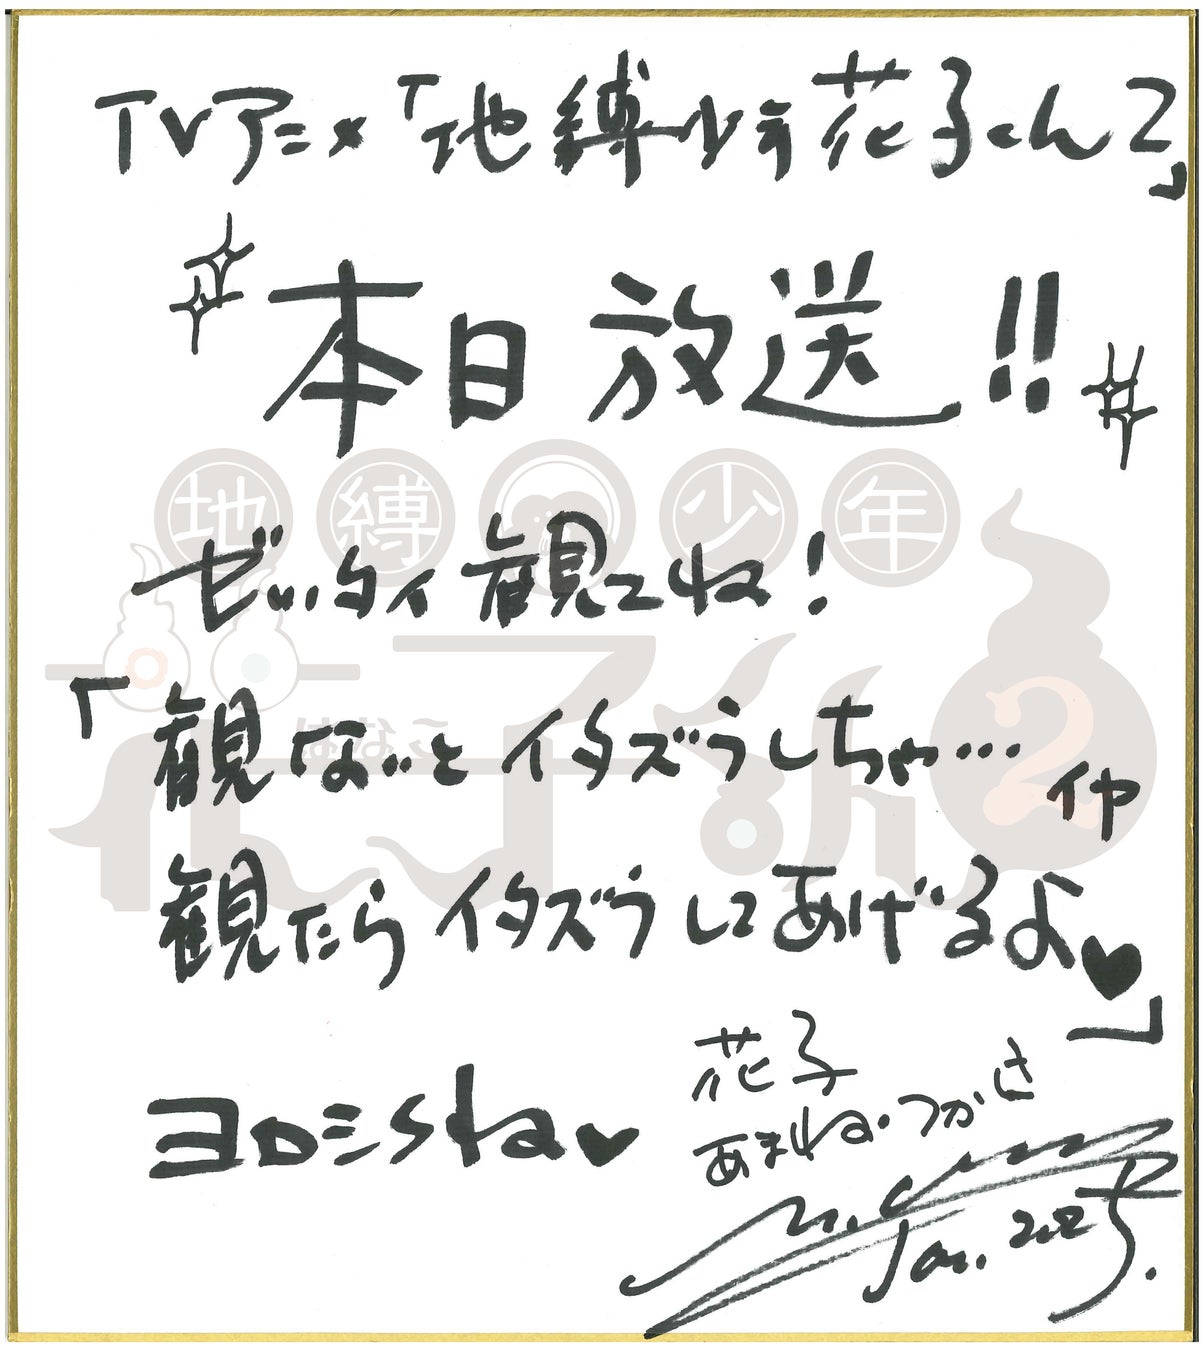 TVアニメ「地縛少年花子くん2」
本日放送!!
ゼッタイ観てね!
「観ないとイタズラしちゃ…イヤ
観たらイタズラしてあげるよ♥」
ヨロシくね♥
花子
あまね・つかさ
Jan. 2025.
地縛少年
花子くん2